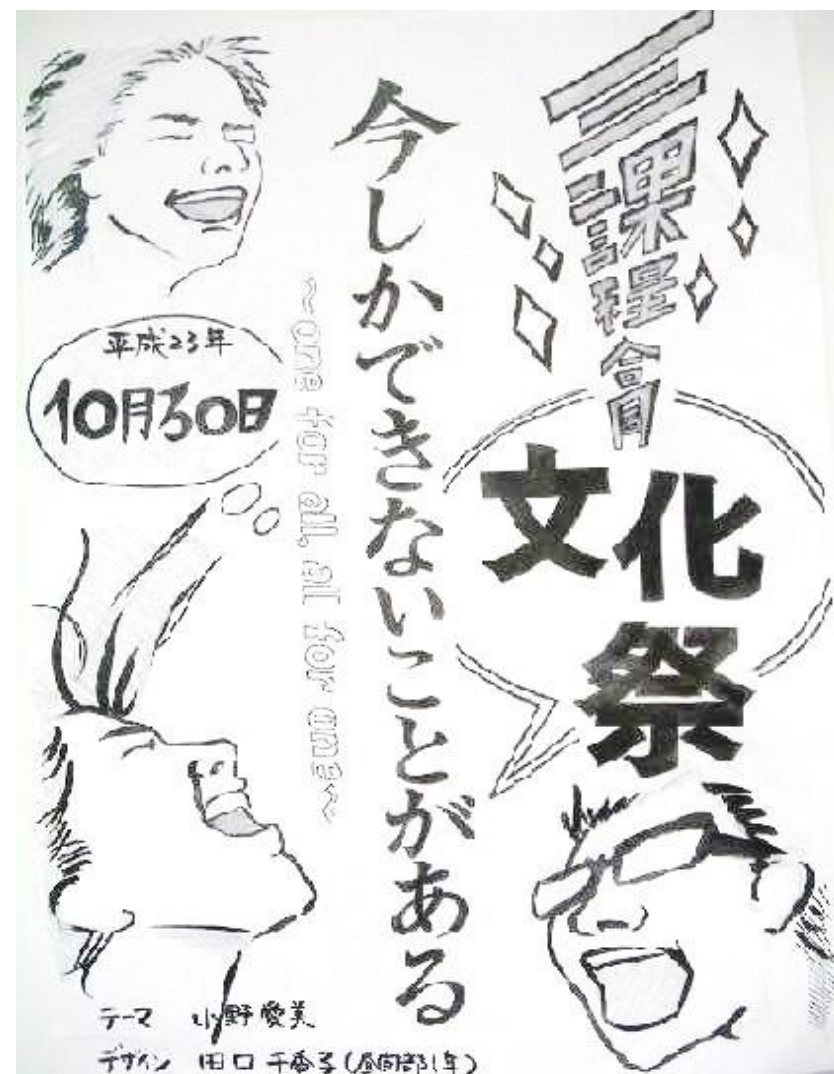 三課程合同
文化
祭
今しかできないことがある
～one for all, al for one～
平成23年
10月30日
テーマ 小野愛美
デザイン 田口千香子(昼間部1年)